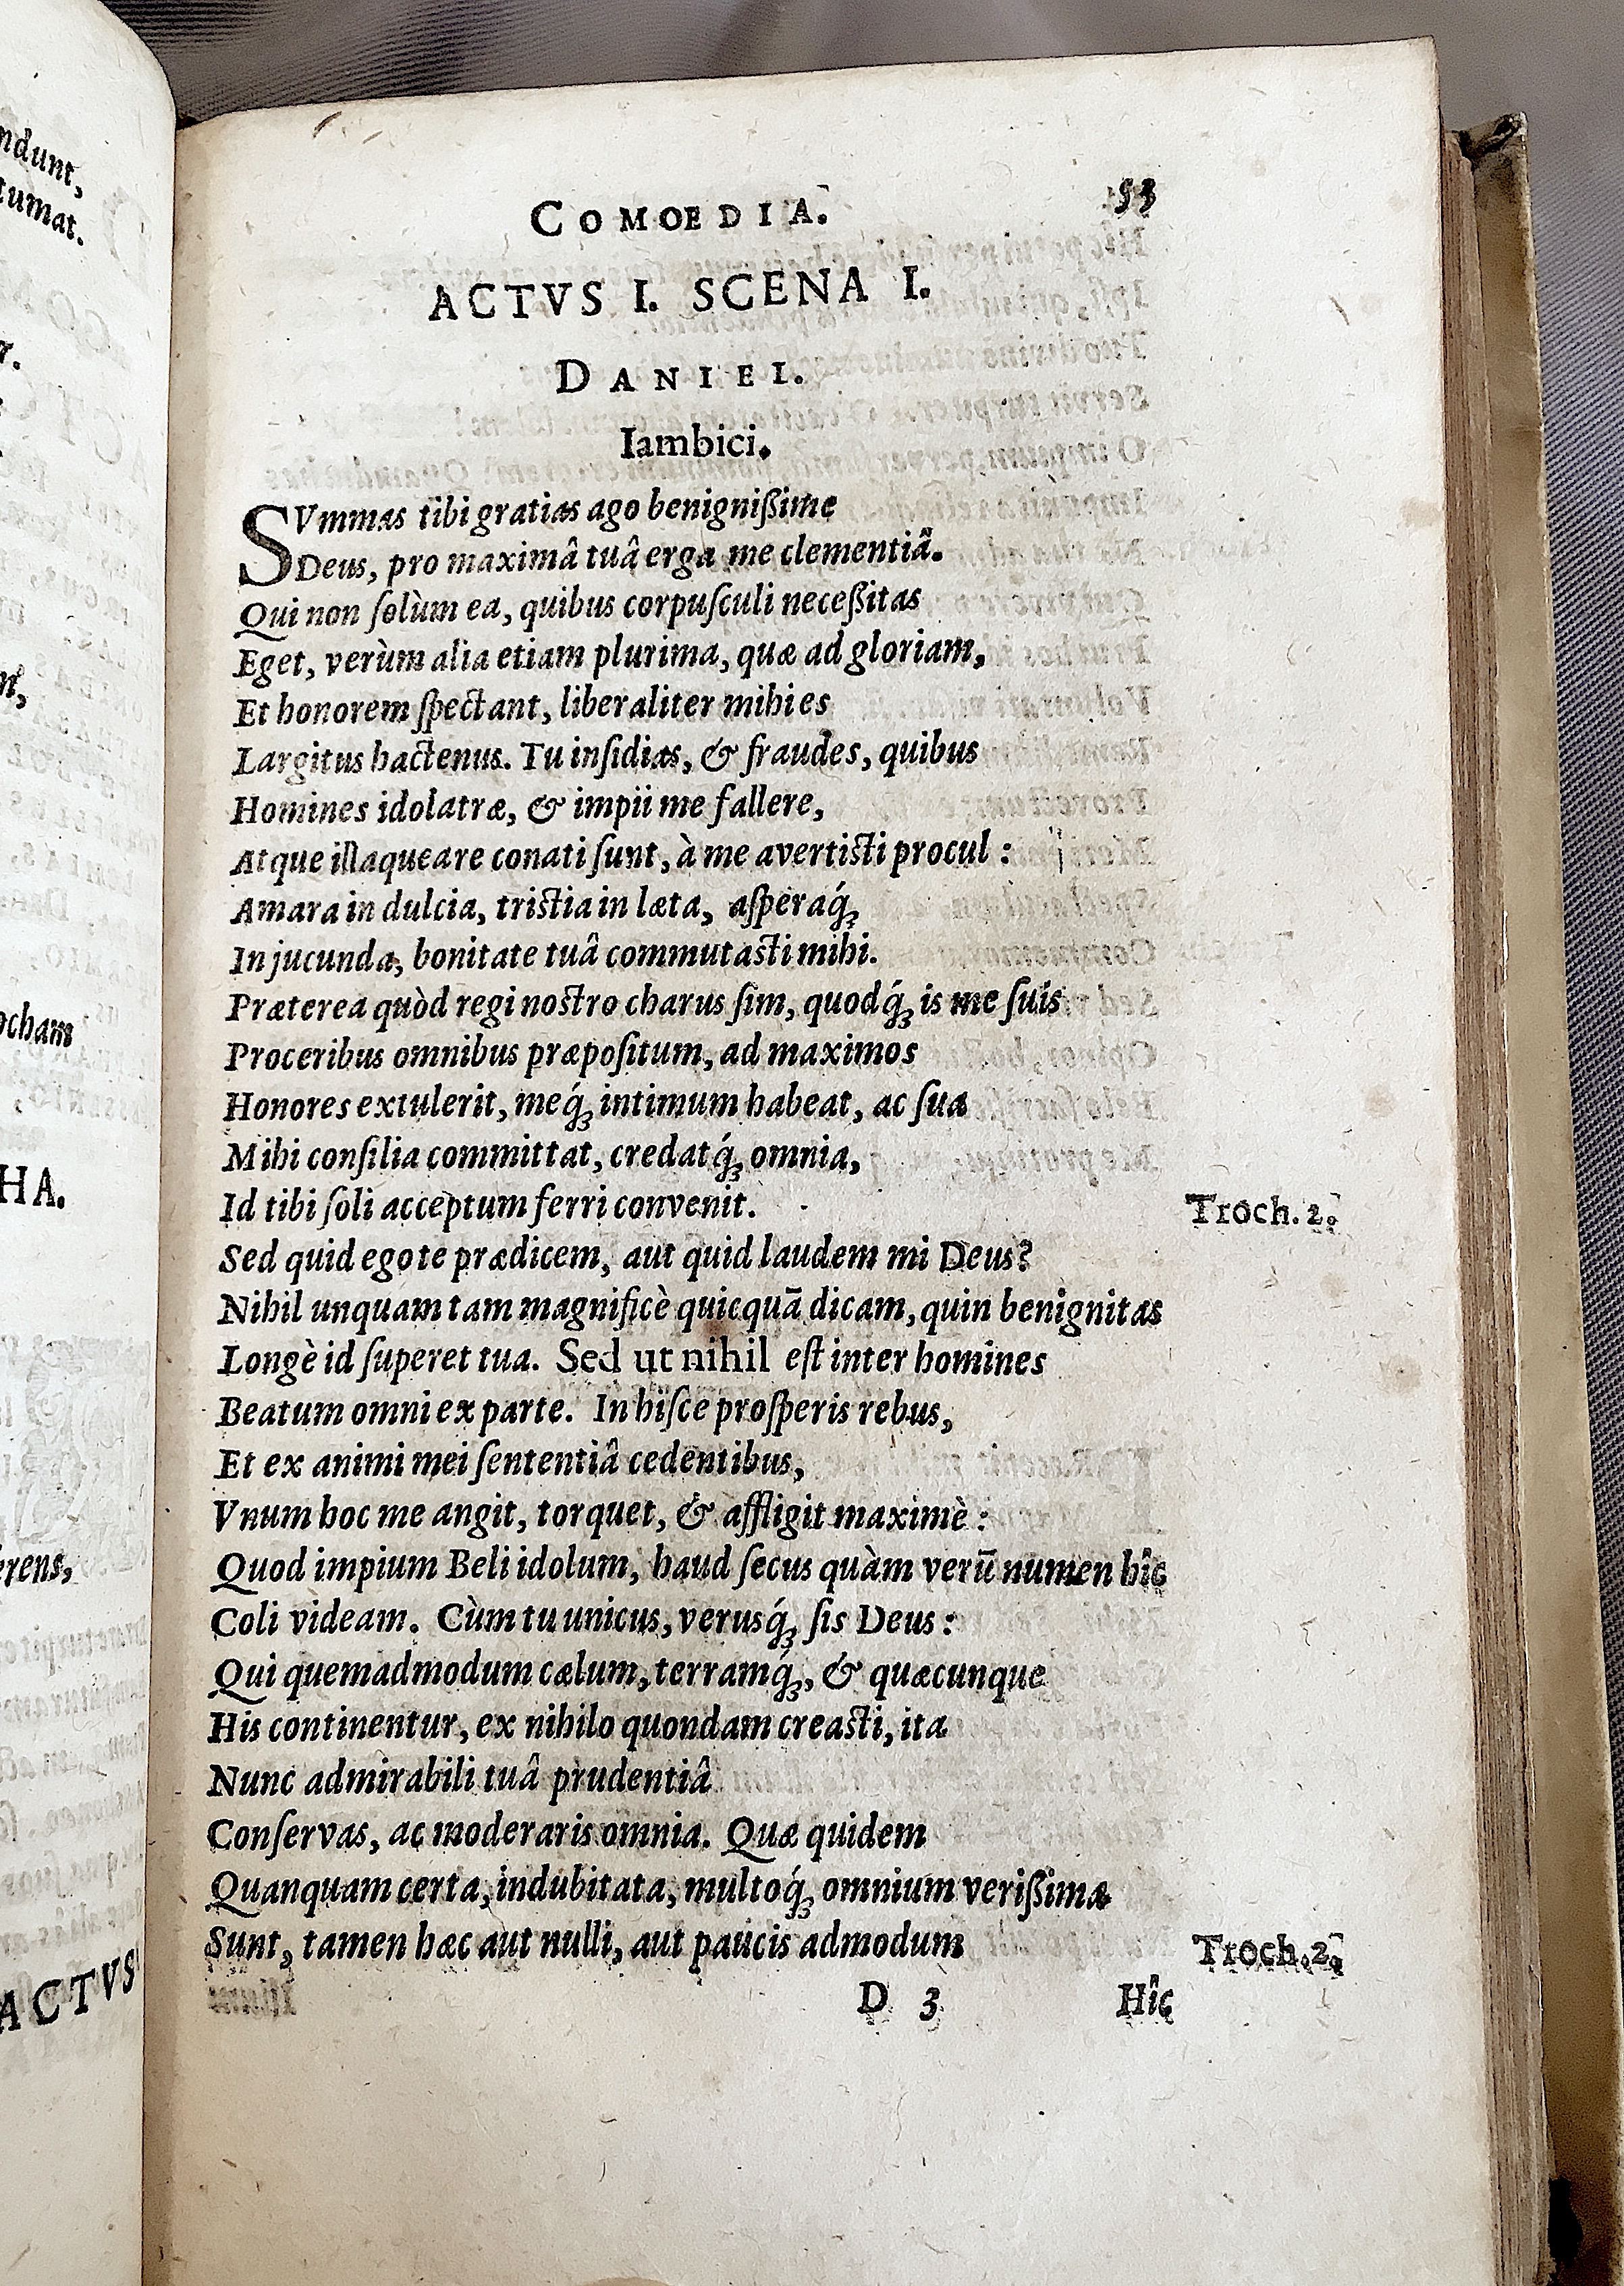 ndunt,
tumat.
HA.
ocham
erens,
ACTVS
COMOEDIA. 53
ACTVS I. SCENA I.
DANIEL.
Iambici.
SVmmas tibi gratias ago benignißime
Deus, pro maximâ tuâ erga me clementiâ.
Qui non ſolùm ea, quibus corpuſculi neceßitas
Eget, verùm alia etiam plurima, quæ ad gloriam,
Et honorem ſpectant, liberaliter mihi es
Largitus hactenus. Tu inſidias, & fraudes, quibus
Homines idolatræ, & impii me fallere,
Atque illaqueare conati ſunt, à me avertiſti procul :
Amara in dulcia, triſtia in læta, aſperaq́ꝫ
In jucunda, bonitate tuâ commutaſti mihi.
Præterea quòd regi noſtro charus ſim, quodq́ꝫ is me ſuis
Proceribus omnibus præpoſitum, ad maximos
Honores extulerit, meq́ꝫ intimum habeat, ac ſua
Mihi conſilia committat, credatq́ꝫ omnia,
Id tibi ſoli acceptum ferri convenit. Troch. 2.
Sed quid ego te prædicem, aut quid laudem mi Deus?
Nihil unquam tam magnificè quicquā dicam, quin benignitas
Longè id ſuperet tua. Sed ut nihil eſt inter homines
Beatum omni ex parte. In hiſce proſperis rebus,
Et ex animi mei ſententiâ cedentibus,
Vnum hoc me angit, torquet, & affligit maximè :
Quod impium Beli idolum, haud ſecus quàm verū numen hîc
Coli videam. Cùm tu unicus, verusq́ꝫ ſis Deus :
Qui quemadmodum cælum, terramq́ꝫ, & quæcunque
His continentur, ex nihilo quondam creaſti, ita
Nunc admirabili tuâ prudentiâ
Conſervas, ac moderaris omnia. Quæ quidem
Quanquam certa, indubitata, multoq́ꝫ omnium verißima
Sunt, tamen hæc aut nulli, aut paucis admodum Troch. 2.
D 3 Hîc